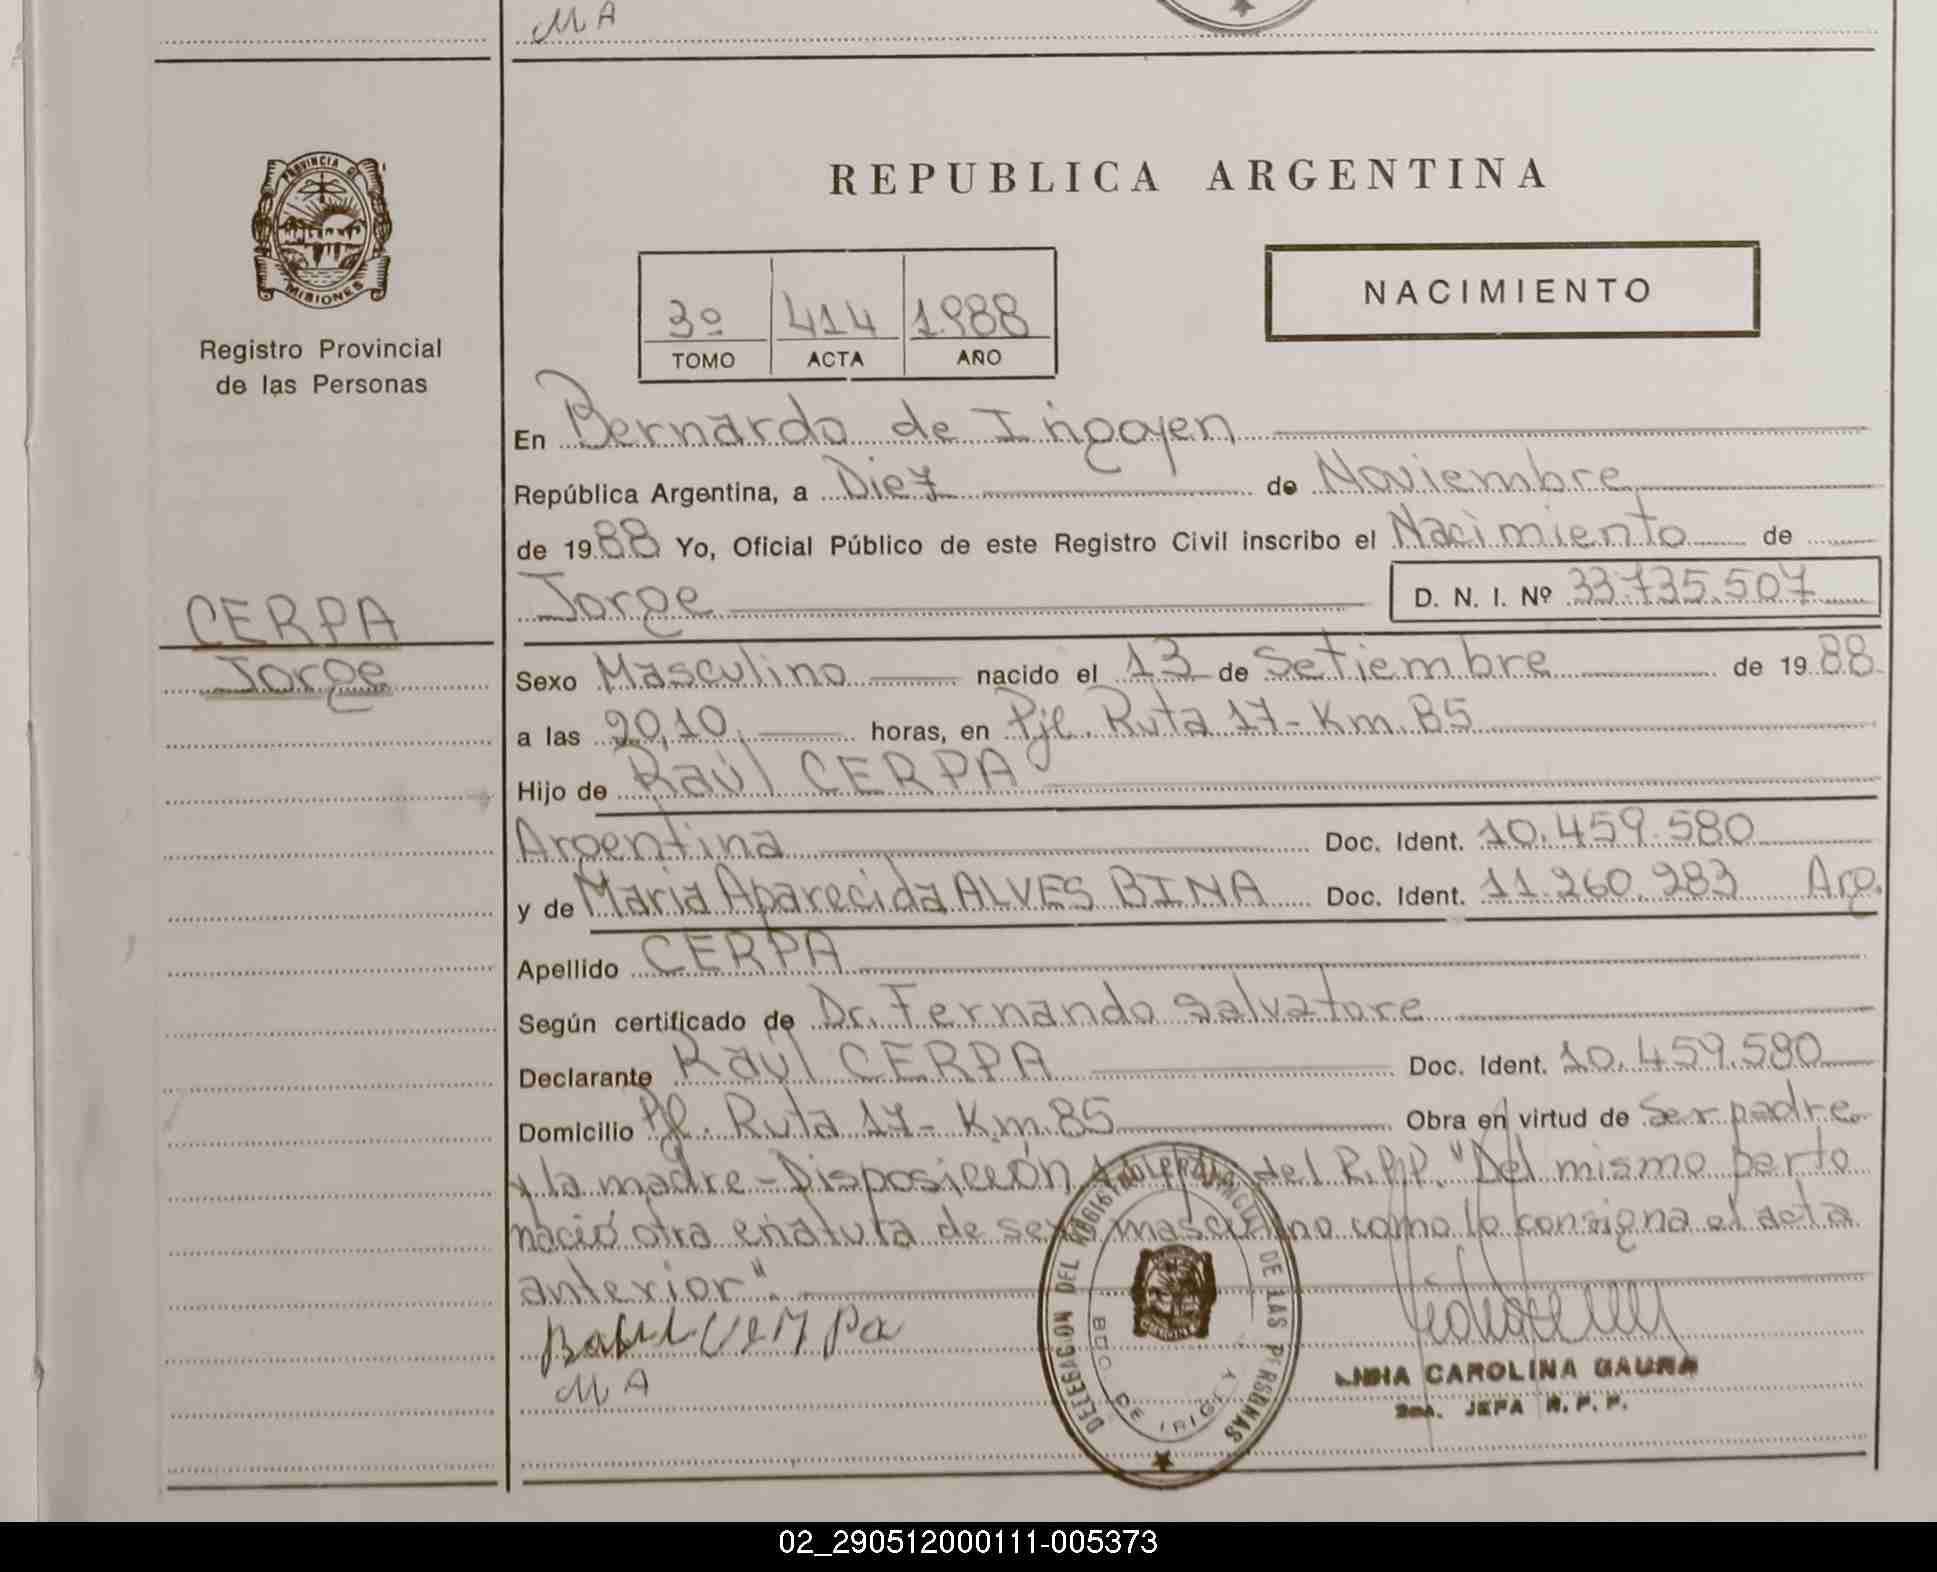 MA
PROVINCIA DE
MISIONES
Registro Provincial
de las Personas
REPUBLICA ARGENTINA
3º 414 1.988
TOMO ACTA AÑO
NACIMIENTO
En Bernardo de Irigoyen
República Argentina, a Diez de Noviembre
de 1988 Yo, Oficial Público de este Registro Civil inscribo el Nacimiento de
Jorge D. N. I. Nº 33.735.507
CERPA
Jorge
Sexo Masculino nacido el 13 de Setiembre de 1988
a las 20,10 horas, en Pje. Ruta 17- Km. 85
Hijo de Raúl CERPA
Argentina Doc. Ident. 10.459.580
y de Maria Aparecida ALVES BINA Doc. Ident. 11.260.283 Arg.
Apellido CERPA
Según certificado de Dr. Fernando Salvatore
Declarante Raúl CERPA Doc. Ident. 10.459.580
Domicilio Pje. Ruta 17- Km. 85 Obra en virtud de ser padre
y la madre - Disposición del R.P.P. "Del mismo parto
nació otra criatura de sexo masculino como lo consigna el acta
anterior".
MA
DELEGACION DEL REGISTRO PROVINCIAL DE LAS PERSONAS
BDO. DE IRIGOYEN
CAROLINA GAUNA
JEFA R.P.P.
02_290512000111-005373